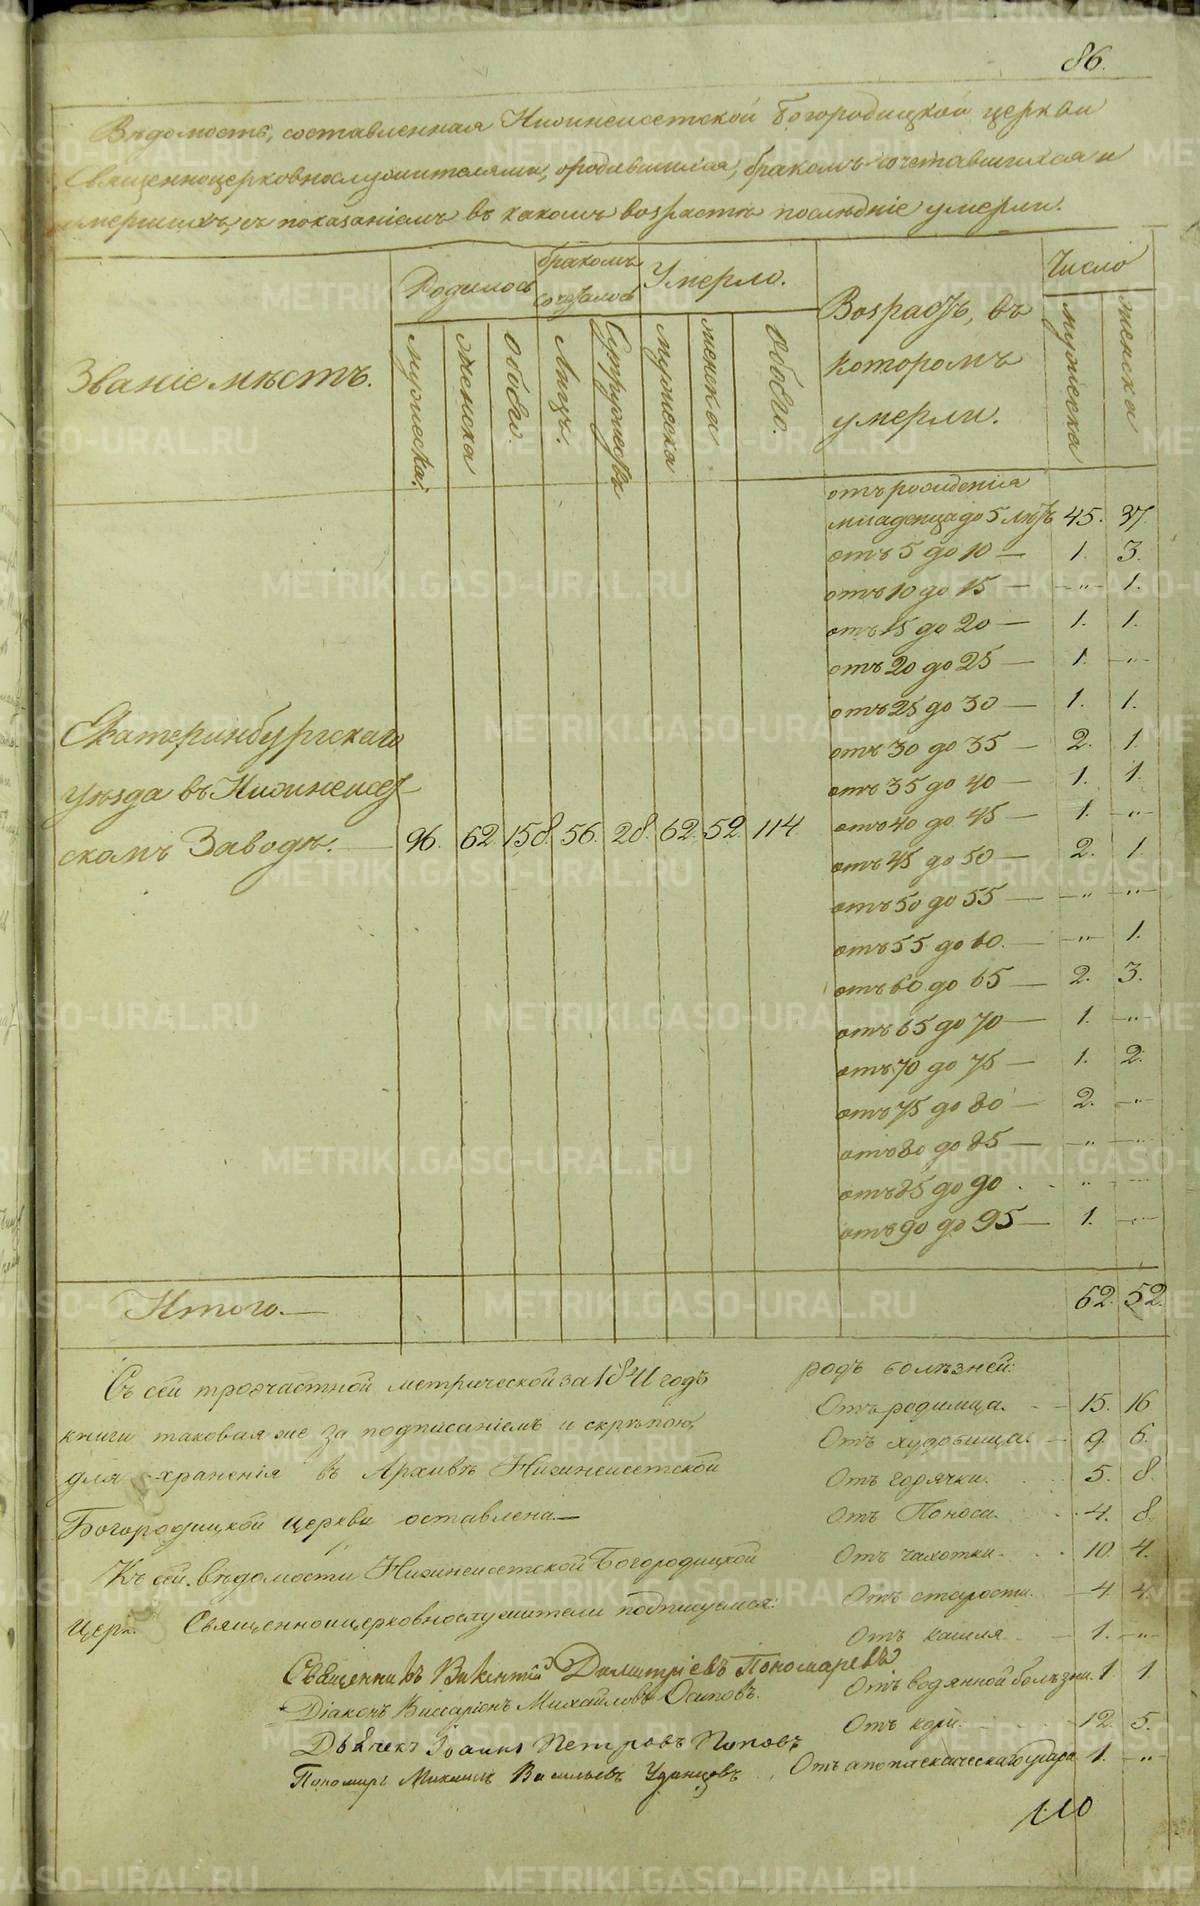 86.
Вѣдомость, составленная Нижнеисетской Богородицкой церкви
Священноцерковнослужителями, о родившихся, бракомъ сочетавшихся и
умершихъ, съ показаніемъ въ какомъ возрастѣ послѣдніе умерли.
Званіе мѣстъ.
Родилось
бракомъ сочеталось
Умерло.
Возрастъ, въ которомъ умерли.
Число
мужеска.
женска
обоего.
Лицъ.
Супружествъ
мужеска
женска
обоего.
мужеска
женска
отъ рожденія
младенца до 5 лѣтъ 45. 37.
отъ 5 до 10 — 1. 3.
отъ 10 до 15 — " — 1.
отъ 15 до 20 — 1. 1.
отъ 20 до 25 — 1. — " —
отъ 25 до 30 — 1. 1.
отъ 30 до 35 — 2. 1.
отъ 35 до 40 — 1. 1.
отъ 40 до 45 — 1. — " —
отъ 45 до 50 — 2. 1
отъ 50 до 55 — " — — " —
отъ 55 до 60. — " — 1.
отъ 60 до 65 — 2. 3.
отъ 65 до 70 — 1. — " —
отъ 70 до 75 — 1. 2.
отъ 75 до 80 — 2. — " —
отъ 80 до 85 — " — — " —
отъ 85 до 90 . " — " —
отъ 90 до 95 — 1. — " —
Екатеринбургскаго
уѣзда въ Нижнеисет
скомъ Заводѣ. — 96. 62 158. 56. 28. 62. 52. 114
Итого. — 62. 52.
Съ сей троечастной метрической за 1841 годъ
книги таковая же за подписаніемъ и скрѣпою,
для храненія въ Архивѣ Нижнеисетской
Богородицкой церкви оставлена —
Къ сей вѣдомости Нижнеисетской Богородицкой
Церк. Священноицерковнослужители подписуемся:
Священникъ Викентій Димитріевъ Пономаревъ
Діаконъ Виссаріонъ Михайловъ Осиповъ.
Дьячекъ Іоаннъ Петровъ Поповъ
Пономарь Михаилъ Васильевъ
родъ болѣзней:
Отъ родимца. — 15. 16
Отъ худобища. — 9. 6.
Отъ горячки. 5. 8.
Отъ Поноса. 4. 8.
Отъ чахотки. 10. 4.
Отъ старости. — 4. 4.
Отъ кашля — 1. — " —
Отъ водянной болѣзни. 1 1.
Отъ кори. — 12. 5.
Отъ апоплексическаго удара 1. — " —
110
METRIKI.GASO-URAL.RU